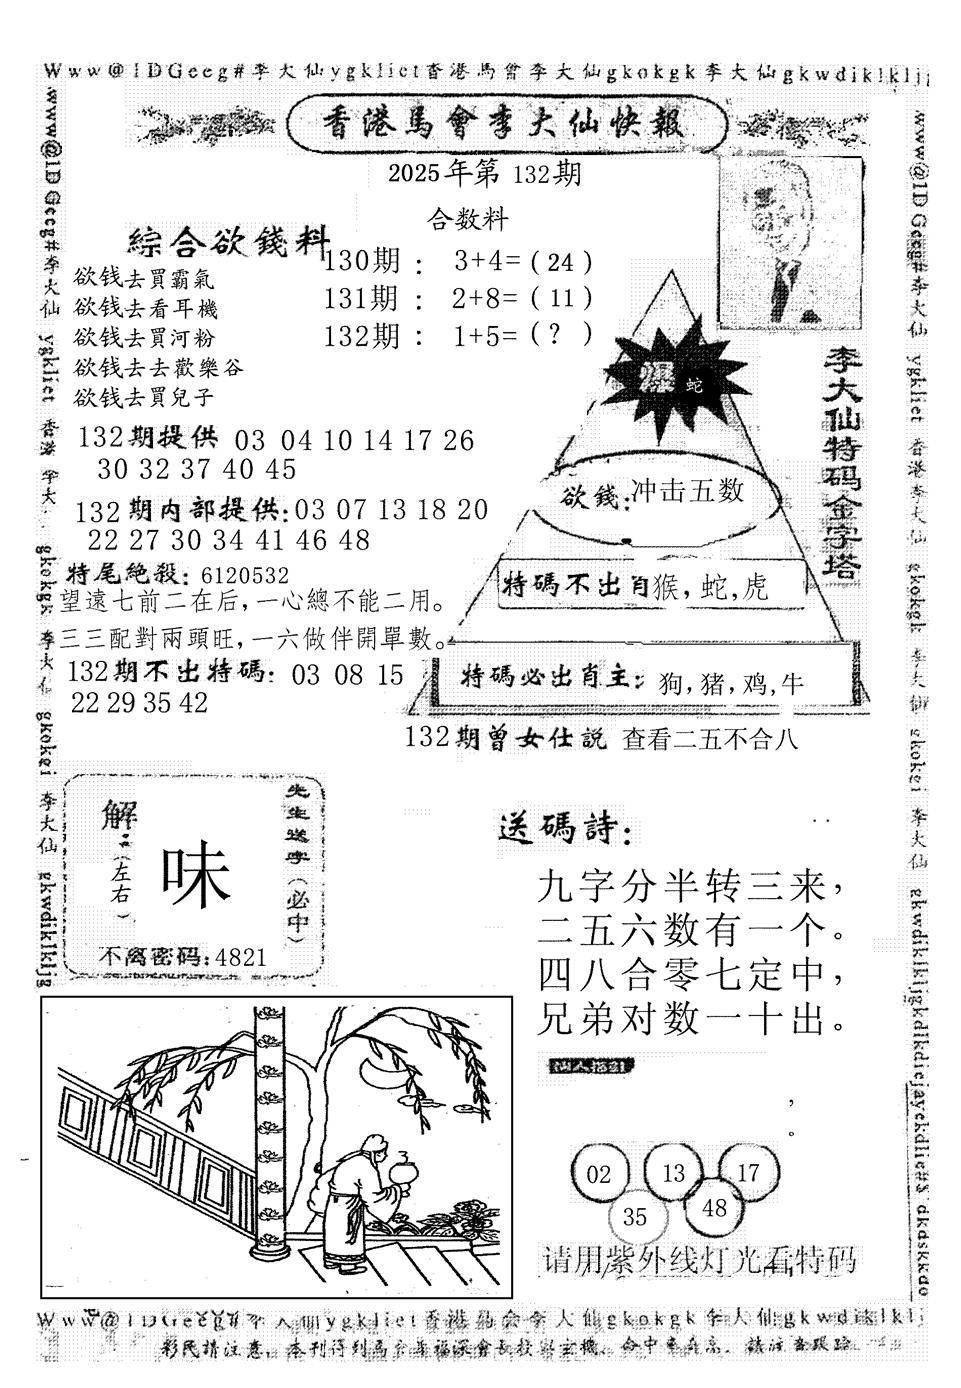 Www@1DGeeg#李大仙ygkliet香港馬會李大仙gkokgk李大仙gkwdiklkljg
香港馬會李大仙快報
2025年第 132期
合数料
綜合欲錢料
130期 : 3+4=(24)
131期 : 2+8=(11)
132期 : 1+5=(?)
欲钱去買霸氣
欲钱去看耳機
欲钱去買河粉
欲钱去去歡樂谷
欲钱去買兒子
132期提供 03 04 10 14 17 26
30 32 37 40 45
132期内部提供:03 07 13 18 20
22 27 30 34 41 46 48
特尾絶殺: 6120532
望遠七前二在后,一心總不能二用。
三三配對兩頭旺,一六做伴開單數。
132期不出特碼: 03 08 15
22 29 35 42
爆 蛇
欲錢:冲击五数
特碼不出肖猴,蛇,虎
特碼必出肖主: 狗,猪,鸡,牛
李大仙特码金字塔
132期曾女仕説 查看二五不合八
解:
(左右)
味
先生送字(必中)
不离密码:4821
送碼詩:
九字分半转三来,
二五六数有一个。
四八合零七定中,
兄弟对数一十出。
,
。
02 13 17
35 48
请用紫外线灯光看特码
www@1DGeeg#李大仙 ygkliet 香港李大仙 gkokgk 李大仙 gkokei 李大仙 gkwdiklkljg
www@1DGeeg#李大仙 ygkliet 香港李大仙 gkokgk 李大仙 gkokei 李大仙 gkwdiklkljgkdlkdiejayekdlie#$ dkdskkdo
李大仙ygkliet香港馬会李大仙gkokgk李大仙gkwdiklklj
彩民請注意